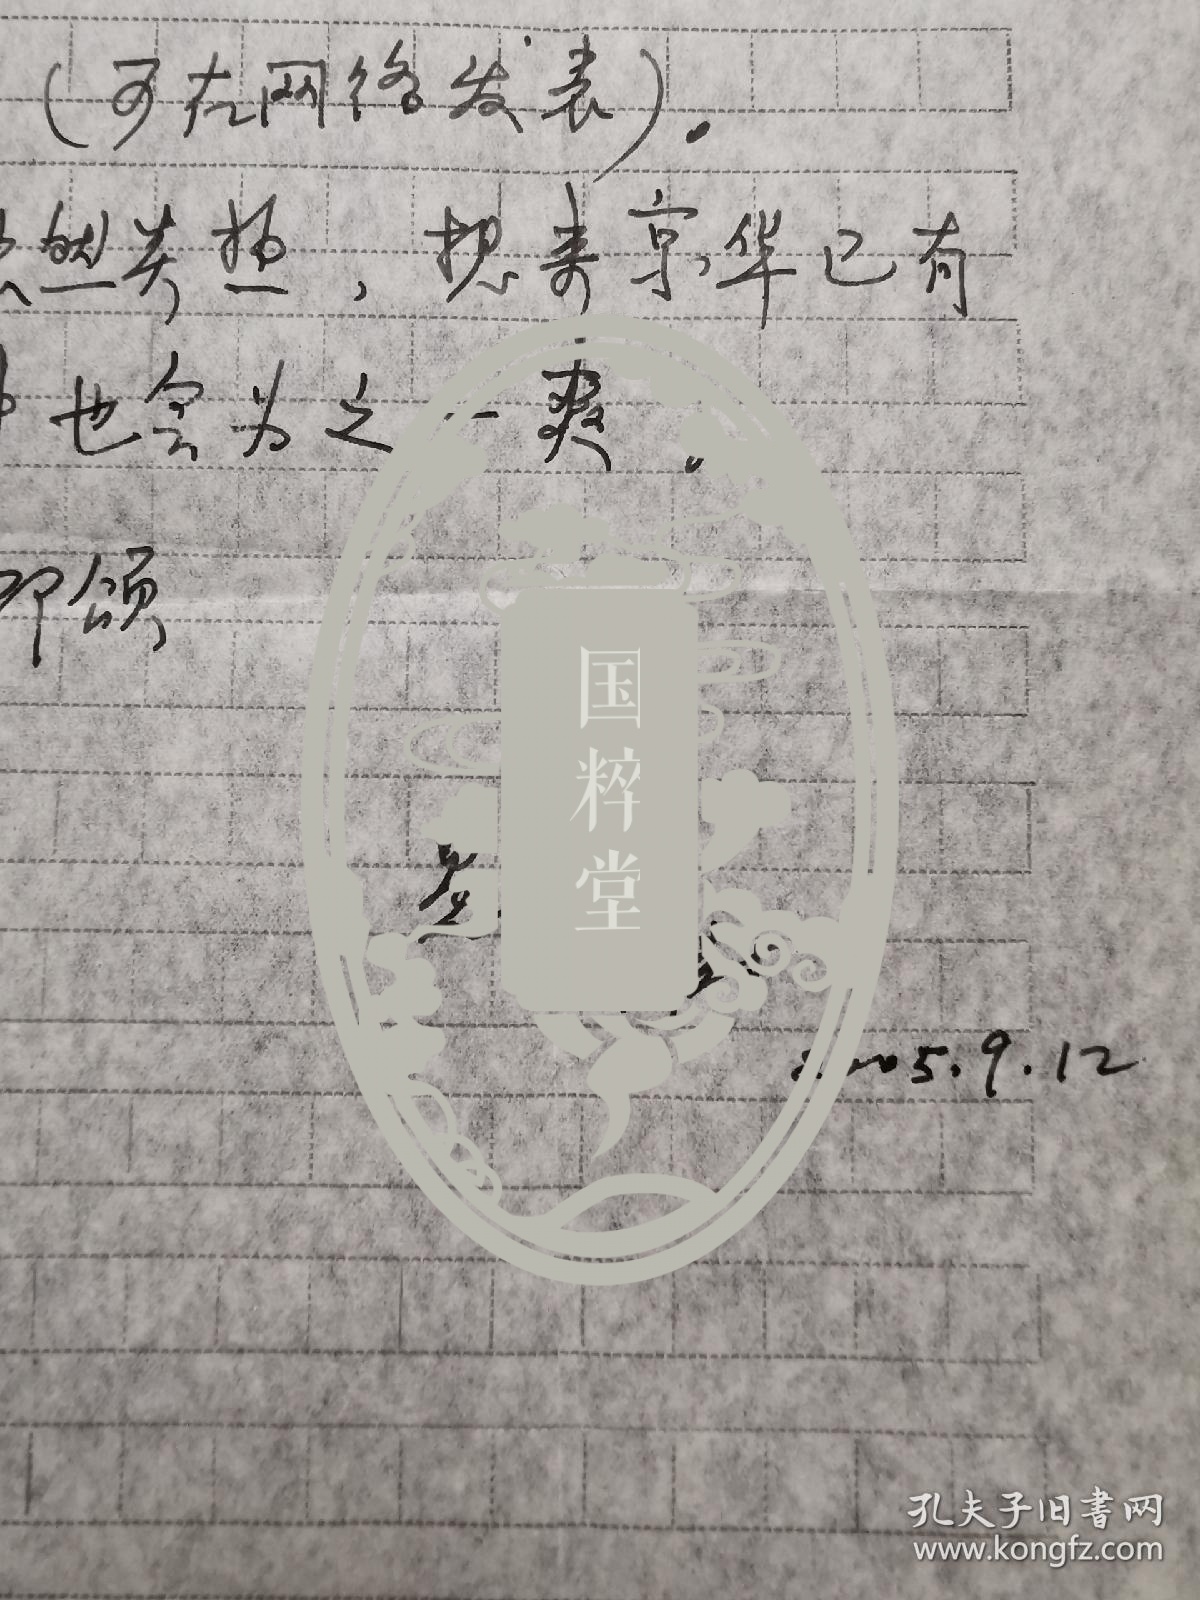 (可在网络发表).
然炎热，想来京华已有
也会为之一爽.
即颂
国粹堂
2005.9.12
孔夫子旧書网
www.kongfz.com